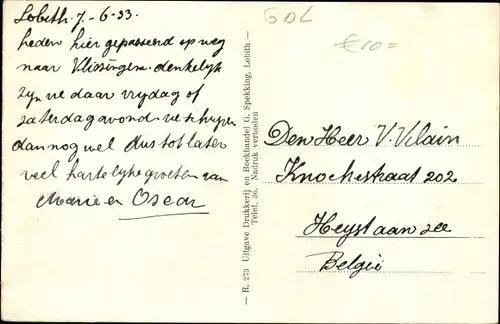 Lobith 7-6-33.
heden hier gepasseerd op weg
naar Vlissingen. denkelijk
zijn we daar vrijdag of
zaterdag avond we schrijven
dan nog wel dus tot later
veel hartelijke groeten van
Marie en Oscar
GDL
€10=
— R. 273 Uitgave Drukkerij en Boekhandel G. Spekking, Lobith —
Telef. 36. Nadruk verboden
Den Heer V. Vilain
Knockestraat 202
Heyst aan zee
Belgie